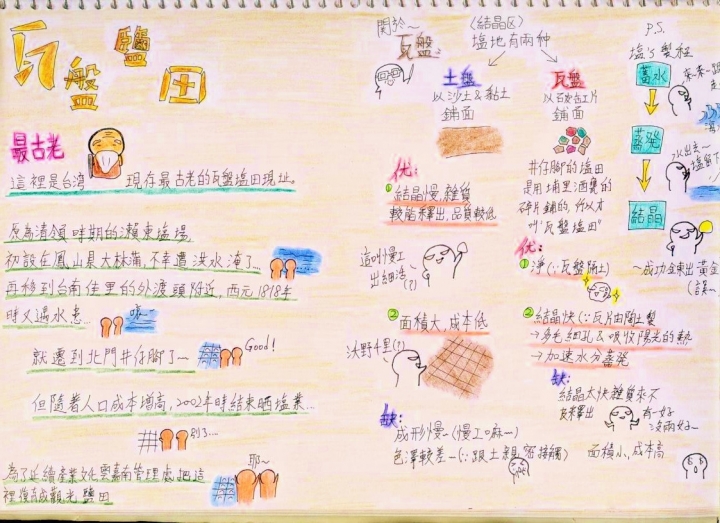 瓦盤鹽田
最古老
這裡是台灣 現存最古老的瓦盤塩田現址。
原為清領時期的瀨東塩場,
初設在鳳山縣大林蒲,不幸遭洪水淹了...
再移到台南佳里的外渡頭附近,西元1818年
時又遇水患...
咳~
就遷到北門井仔腳了~
Good!
但隨着人口成本增高,2002年時結束晒塩業...
別了...
為了延續產業文化雲嘉南管理處把這
裡復育成觀光鹽田
耶~
關於~
瓦盤:
(結晶区)
塩地有兩种
土盤
以沙土&黏土
鋪面
优:
①結晶慢,雜質
較能釋出,品質較低
這叫慢工
出細活~
(?)
②面積大,成本低
沃野千里(?)
缺:
成形慢~(慢工口麻~)
色澤較差~(∵跟土親密接觸)
瓦盤
以瓦片
鋪面
井仔腳的塩田
是用埔里酒甕的
碎片鋪的,所以才
叫"瓦盤塩田"
优:
①淨(∵瓦盤隔土)
②結晶快(∵瓦片由陶土製
→多毛細孔&吸收陽光的熱
→加速水分蒸發
缺:
結晶太快雜質來不
及釋出
有一好
沒兩好~
面積小,成本高
P.S.
塩's製程
蓄水
蒸發
水出去~
塩留下
結晶
~成功全東出黃金
(誤~